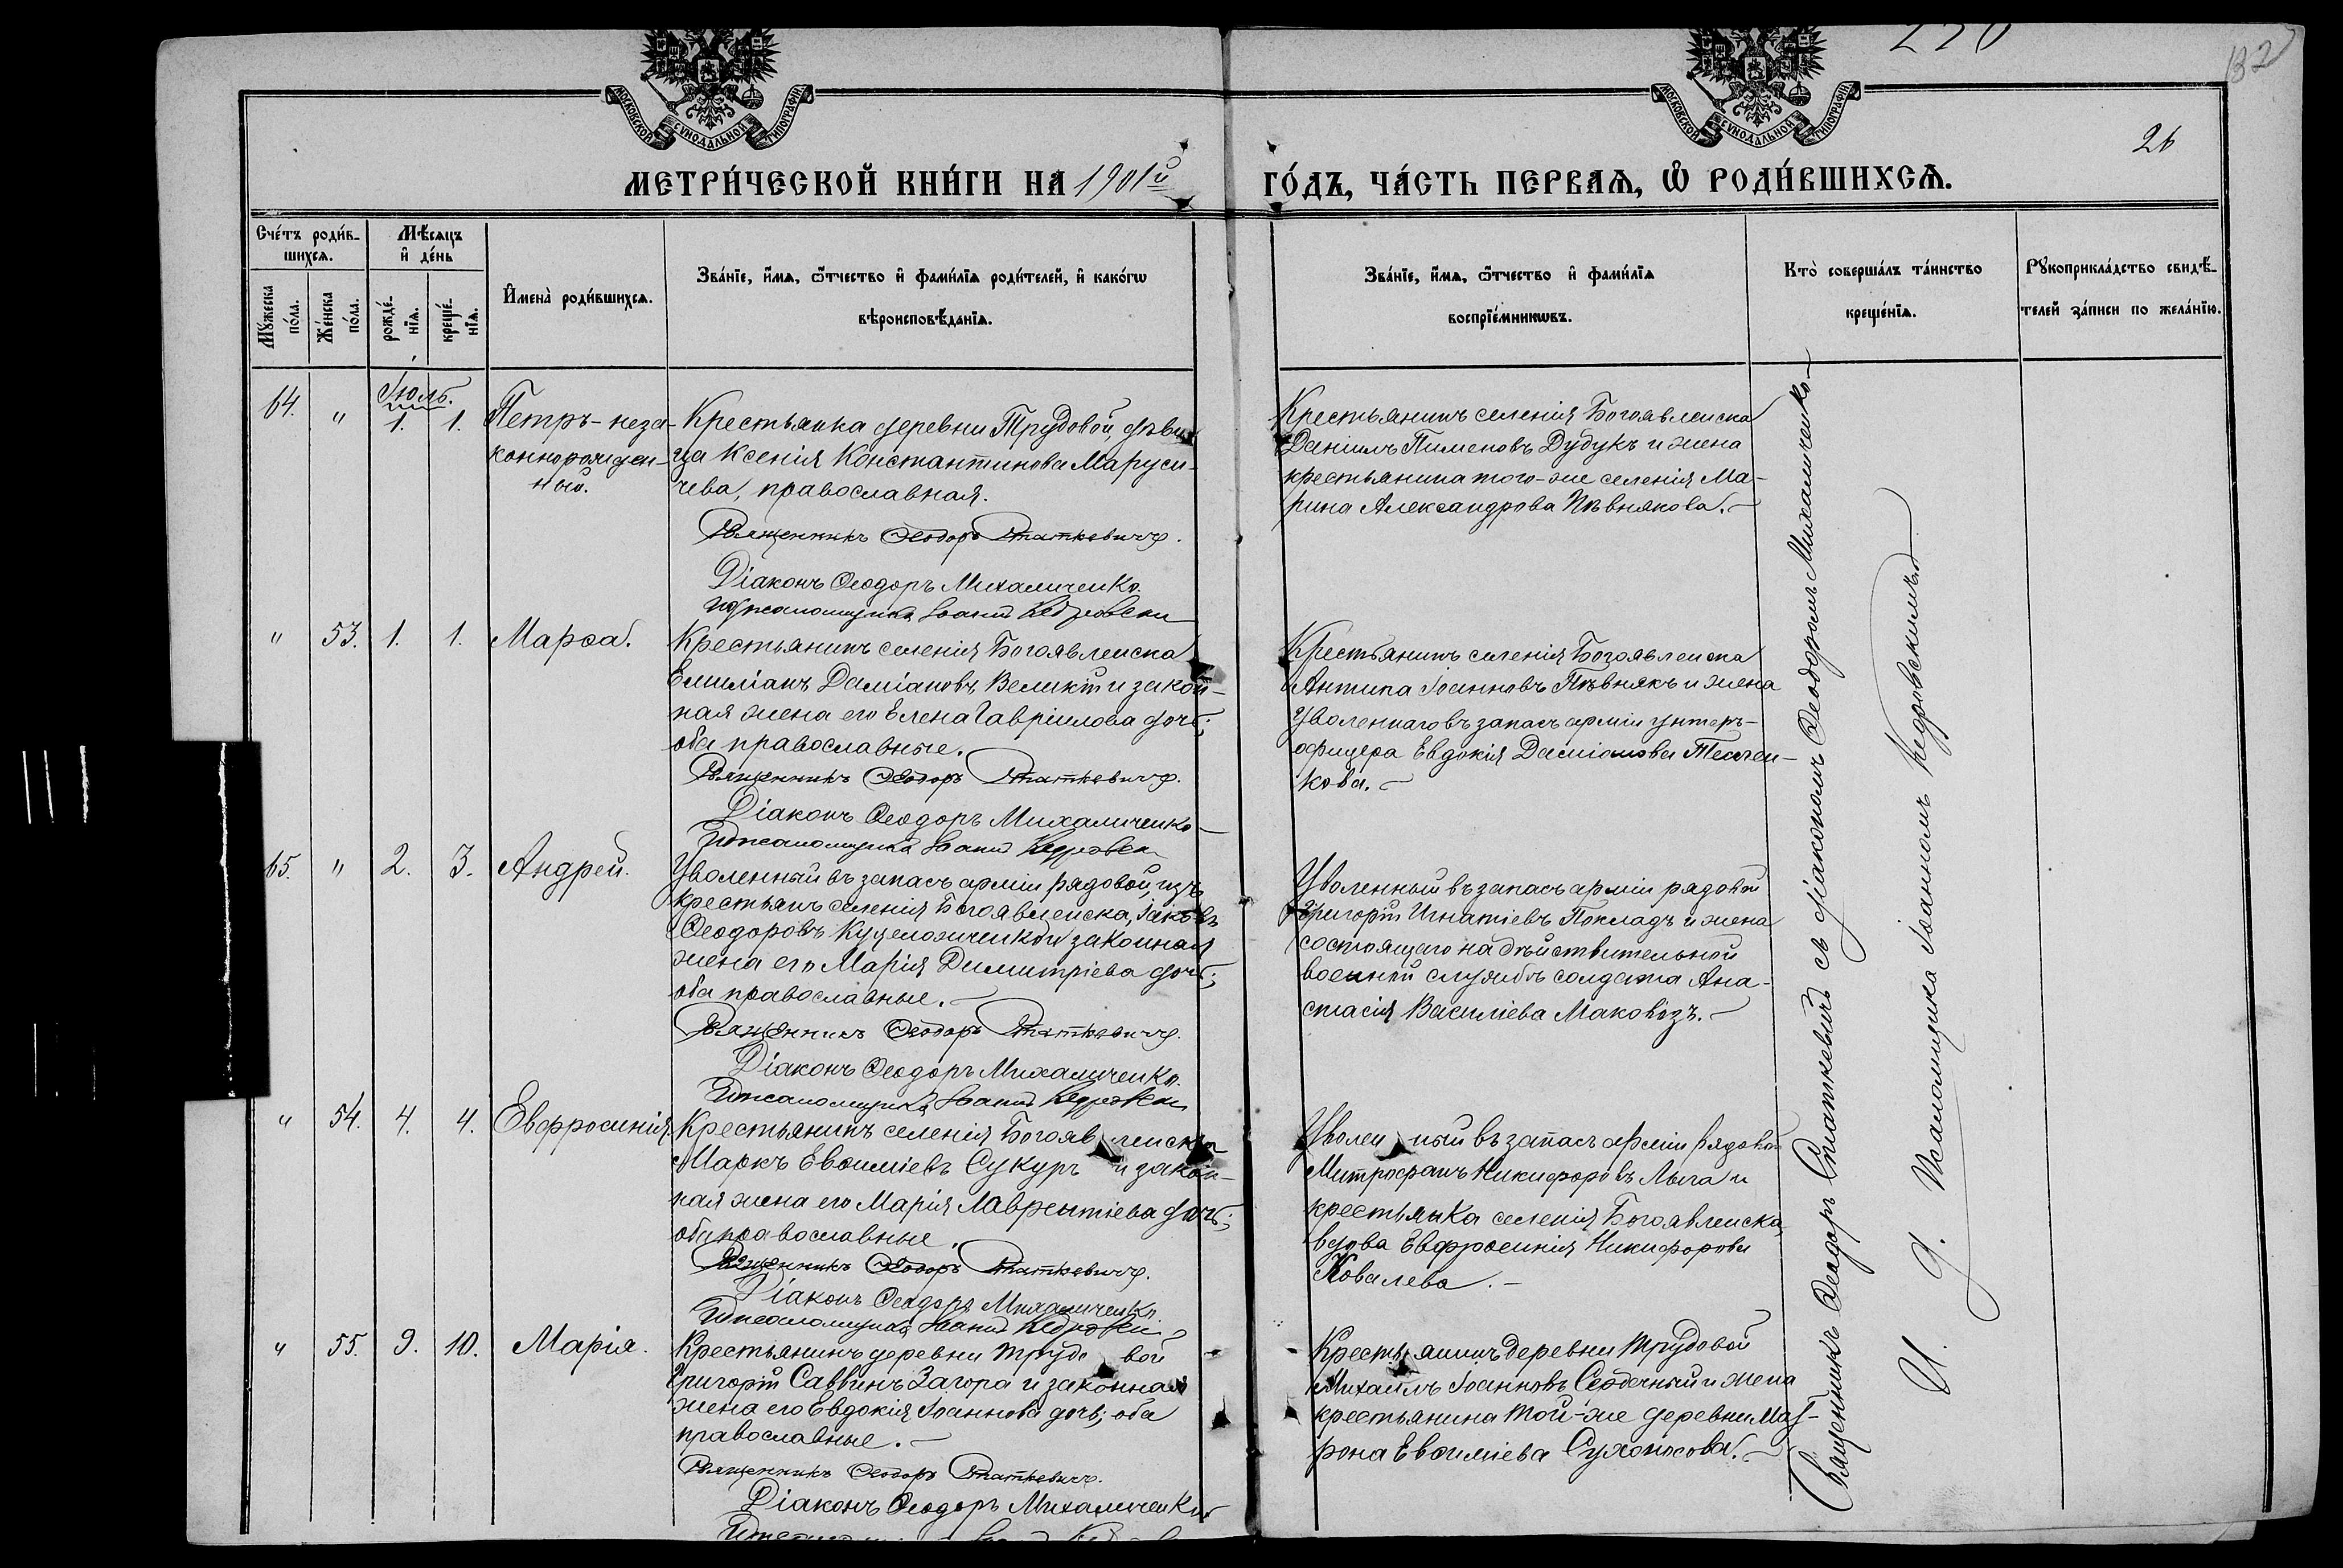 132
26
МОСКОВСКОЙ СѴНОДАЛЬНОЙ ТИПОГРАФІИ
МОСКОВСКОЙ СѴНОДАЛЬНОЙ ТИПОГРАФІИ
МЕТРИ́ЧЕСКОЙ КНИ́ГИ НА 1901й ГО́ДЪ, ЧА́СТЬ ПЕРВАѦ, Ѡ РОДИ́ВШИХСѦ.
Сче́тъ роди́в-
шихсѧ.
Мꙋжеска
по́ла.
Же́нска
по́ла.
Мѣ́сѧцъ
и҆ де́нь
рожде́-
нїѧ.
креще́-
нїѧ.
И҆мена̀ роди́вшихсѧ.
Зва́нїе, и҆́мѧ, ѻ҆́тчество и҆ фами́лїѧ роди́телей, и҆ како́гѡ
вѣроисповѣ́данїѧ.
Зва́нїе, и҆́мѧ, ѻ҆́тчество и҆ фами́лїѧ
воспрїе́мникѡвъ.
Кто̀ соверша́лъ та́инство
креще́нїѧ.
Рꙋкоприкла́дство свидѣ́-
телей за́писи по жела́нїю.
Іюль.
64. " 1. 1. Петръ - неза-
коннорожден-
ный.
Крестьянка деревни Трудовой, дѣви-
ца Ксенія Константинова Маруси-
чева, православная.
Священникъ Ѳеодоръ Статкевичъ.
Діаконъ Ѳеодоръ Михаличенко.
И д псаломщика Іоаннъ Кедровскій
Крестьянинъ селенія Богоявленска
Даніилъ Пименовъ Дудукъ и жена
крестьянина того-же селенія Ма-
рина Александрова Пѣвнякова.
" 53. 1. 1. Марѳа.
Крестьянинъ селенія Богоявленска
Емиліанъ Даміановъ Великій и закон-
ная жена его Елена Гавріилова дочь;
оба православные.
Священникъ Ѳеодоръ Статкевичъ.
Діаконъ Ѳеодоръ Михаличенко
И д псаломщика Іоаннъ Кедровскій
Крестьянинъ селенія Богоявленска
Антипа Іоанновъ Пѣвнякъ и жена
уволеннаго въ запасъ арміи унтеръ-
офицера Евдокія Даміанова
65. " 2. 3. Андрей.
Уволенный въ запасъ арміи рядовой, изъ
крестьянъ селенія Богоявленска, Іаковъ
Ѳеодоровъ и законная
жена его Марія Димитріева дочь;
оба православные.
Священникъ Ѳеодоръ Статкевичъ.
Діаконъ Ѳеодоръ Михаличенко.
И д псаломщика Іоаннъ Кедровскій
Уволенный въ запасъ арміи рядовой
Григорій Игнатіевъ Покладъ и жена
состоящаго на дѣйствительной
военной службѣ солдата Ана-
стасія Василіева Маковозъ.
" 54. 4. 4. Евфросинія.
Крестьянинъ селенія Богоявленска
Маркъ Евѳиміевъ Сукуръ и закон-
ная жена его Марія Лаврентіева дочь;
оба православные.
Священникъ Ѳеодоръ Статкевичъ.
Діаконъ Ѳеодоръ Михаличенко
И д псаломщика Іоаннъ Кедровскій
Уволенный въ запасъ арміи рядовой
Митрофанъ Никифоровъ Лыга и
крестьянка селенія Богоявленска,
вдова Евфросинія Никифорова
Ковалева.
" 55. 9. 10. Марія.
Крестьянинъ деревни Трудовой
Григорій Саввинъ Загора и законная
жена его Евдокія Іоаннова дочь; оба
православные.
Священникъ Ѳеодоръ Статкевичъ.
Діаконъ Ѳеодоръ Михаличенко
Крестьянинъ деревни Трудовой
Михаилъ Іоанновъ Сердечный и жена
крестьянина той-же деревни Мат-
рона Евѳиміева Сухоносова.
Священникъ Ѳеодоръ Статкевичъ съ діакономъ Ѳеодоромъ Михаличенко
И. д. псаломщика Іоанномъ Кедровскимъ